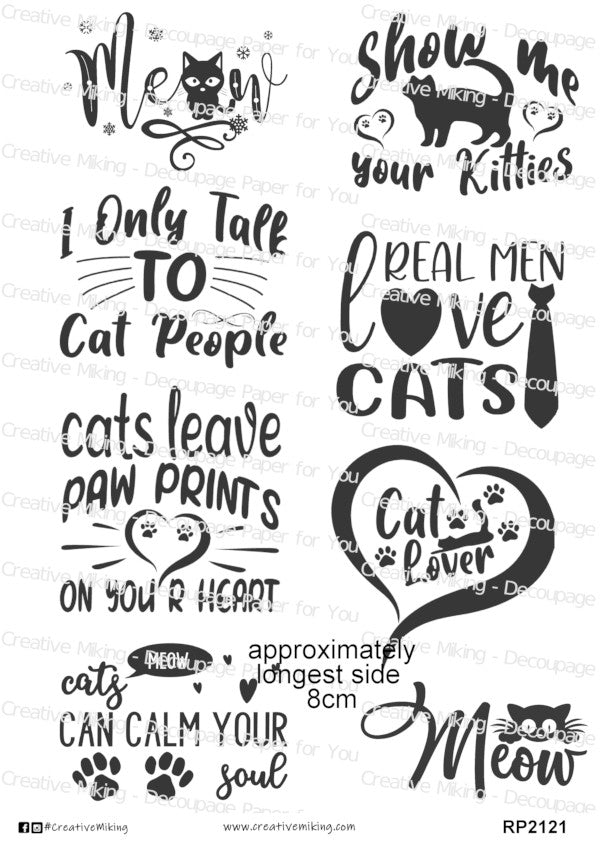 Meow
Show me
your Kitties
I Only Talk
TO
Cat People
REAL MEN
love
CATS
cats leave
PAW PRINTS
ON YOU R HEART
Cat
Lover
MEOW
cats
CAN CALM YOUR
soul
approximately
longest side
8cm
Meow
#CreativeMiking
www.creativemiking.com
RP2121
Creative Miking - Decoupage Paper for You